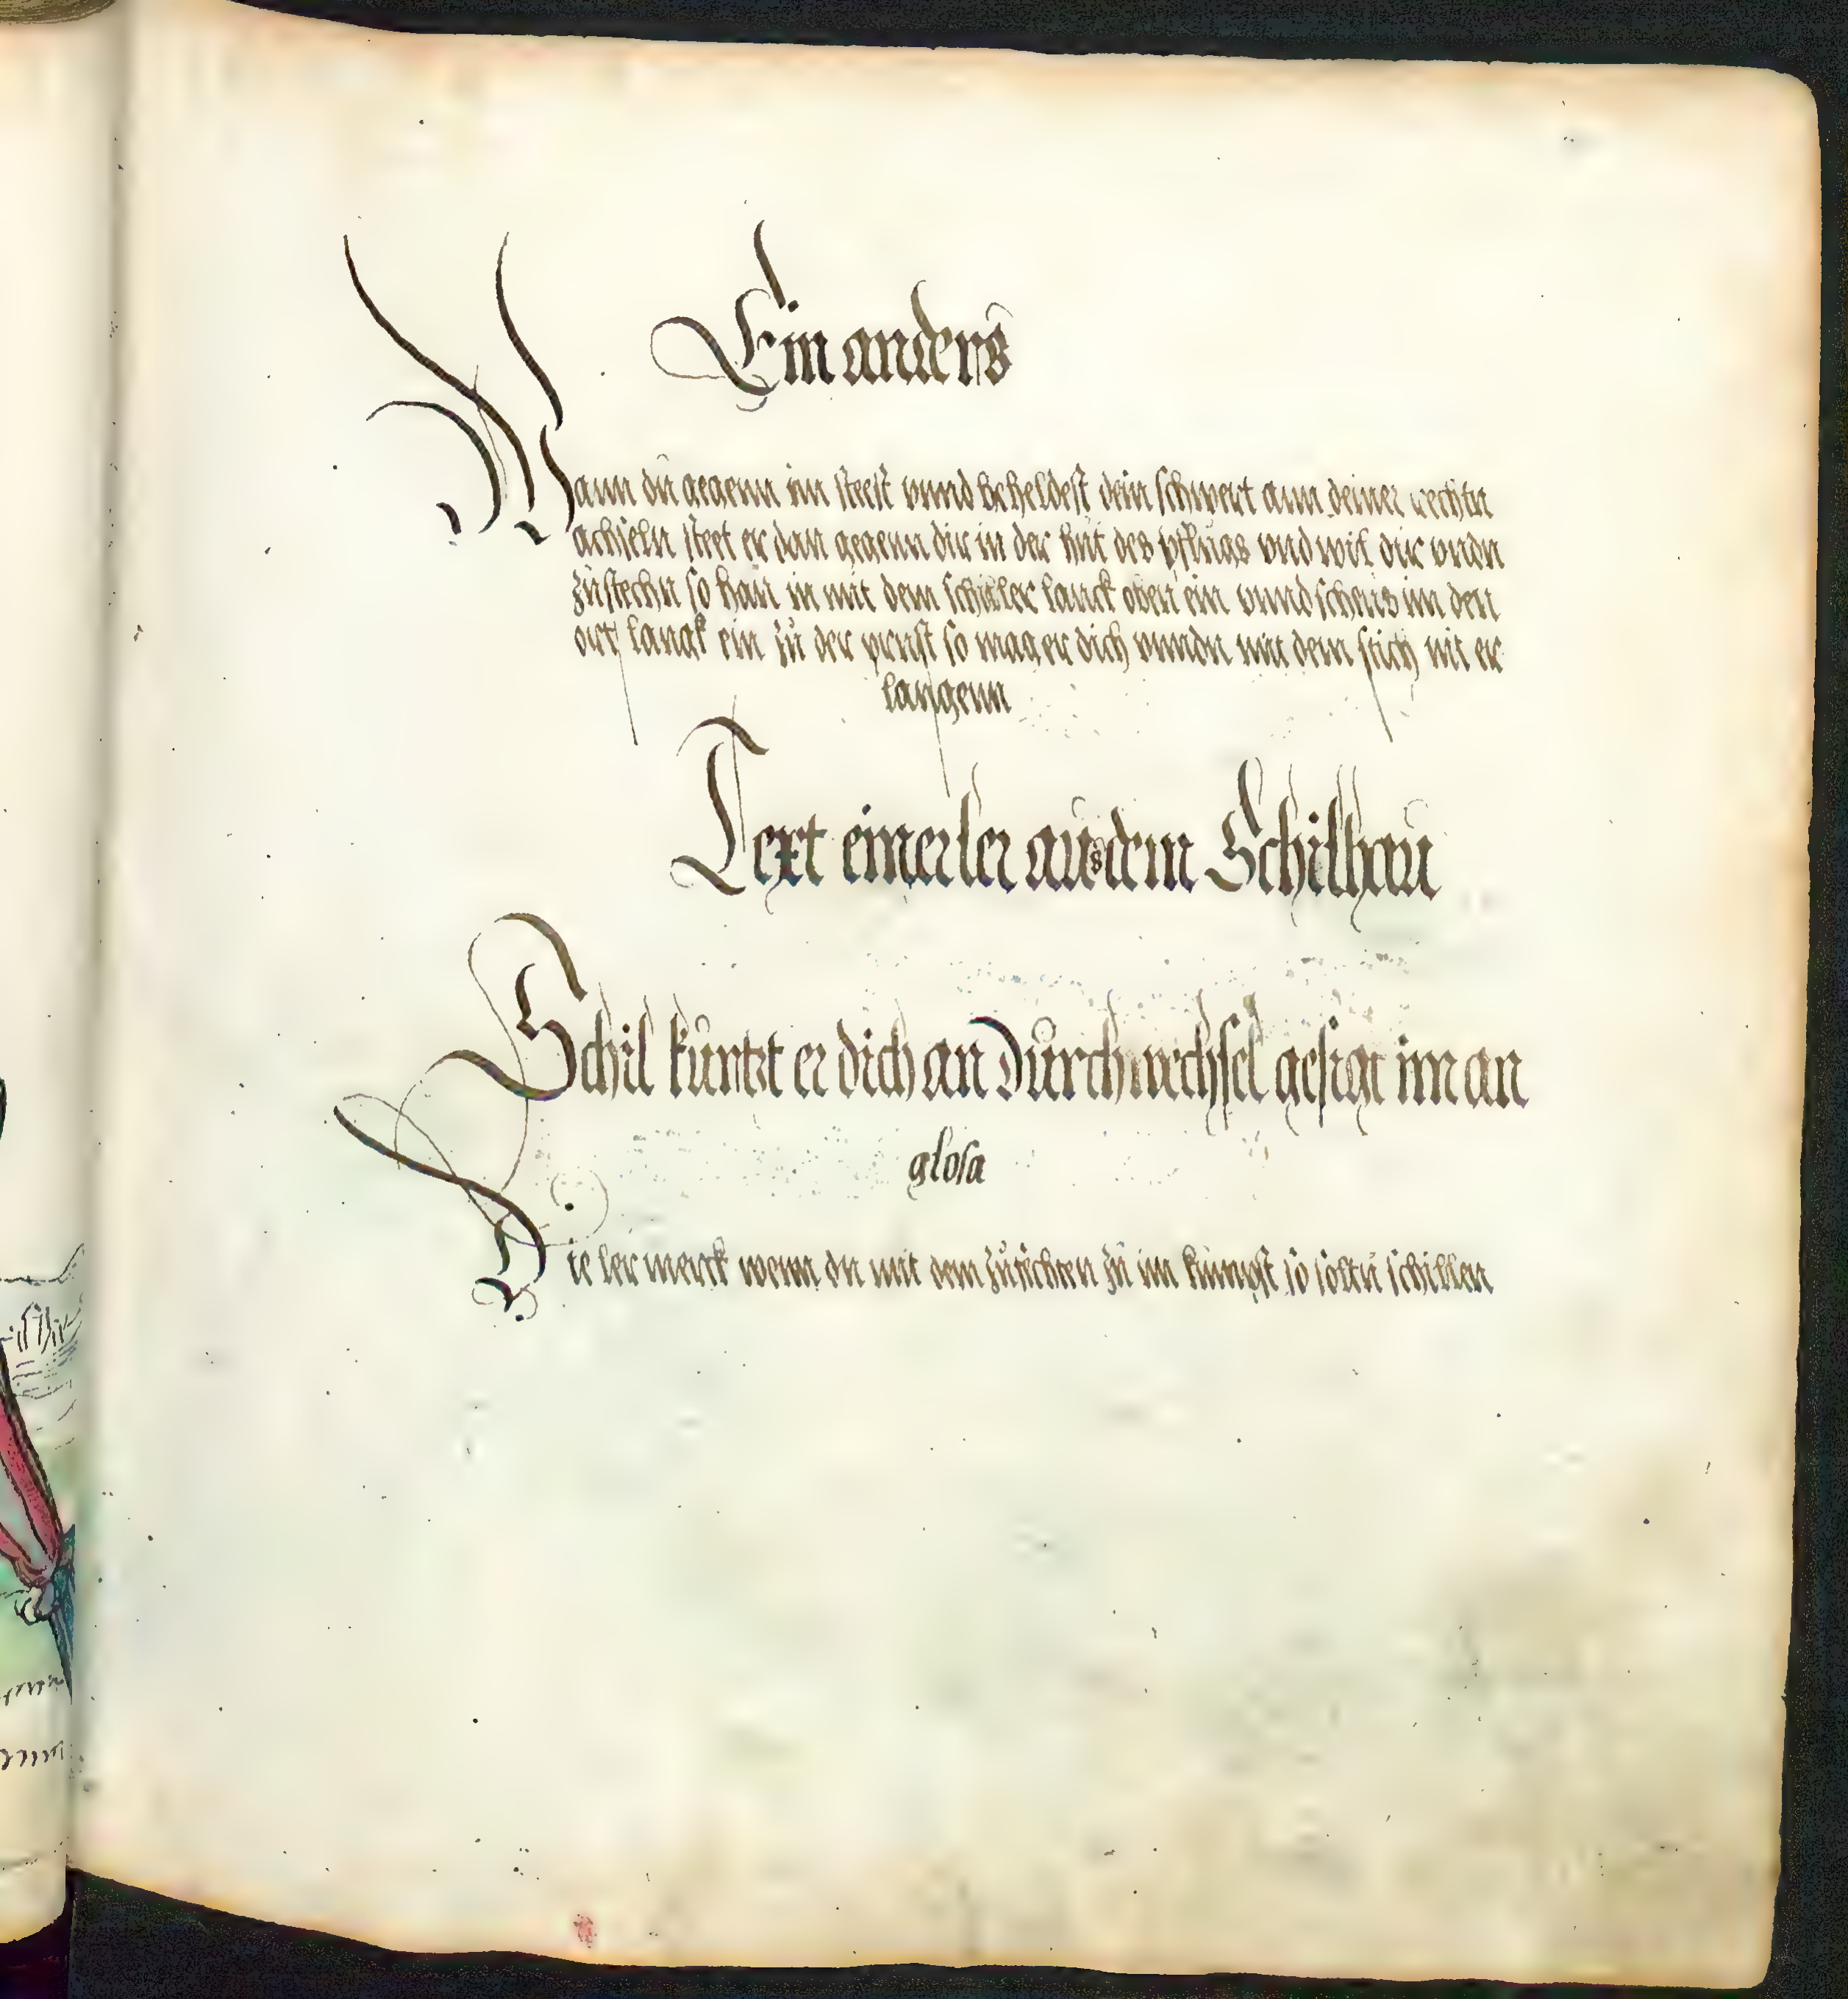 Ein anders
Wann du gegenn im steest vnnd heheldest dein schwert ann deiner rechtn
achseln steet er dan gegenn dir in der hut des pflugs vnd wil dir vndn
zustechn so hau in mit dem schiller lanck oben ein vnnd scheus im den
ort langk ein zu der prust so mag er dich vnndn mit dem stich nit er
langenn
Text einer ler aus dem Schilhau
Schil kurtzt er dich an Durchwechsel gesigt im an
glosa
Die ler merck wenn du mit dem zufechten zu im kumpst so soltu schillen